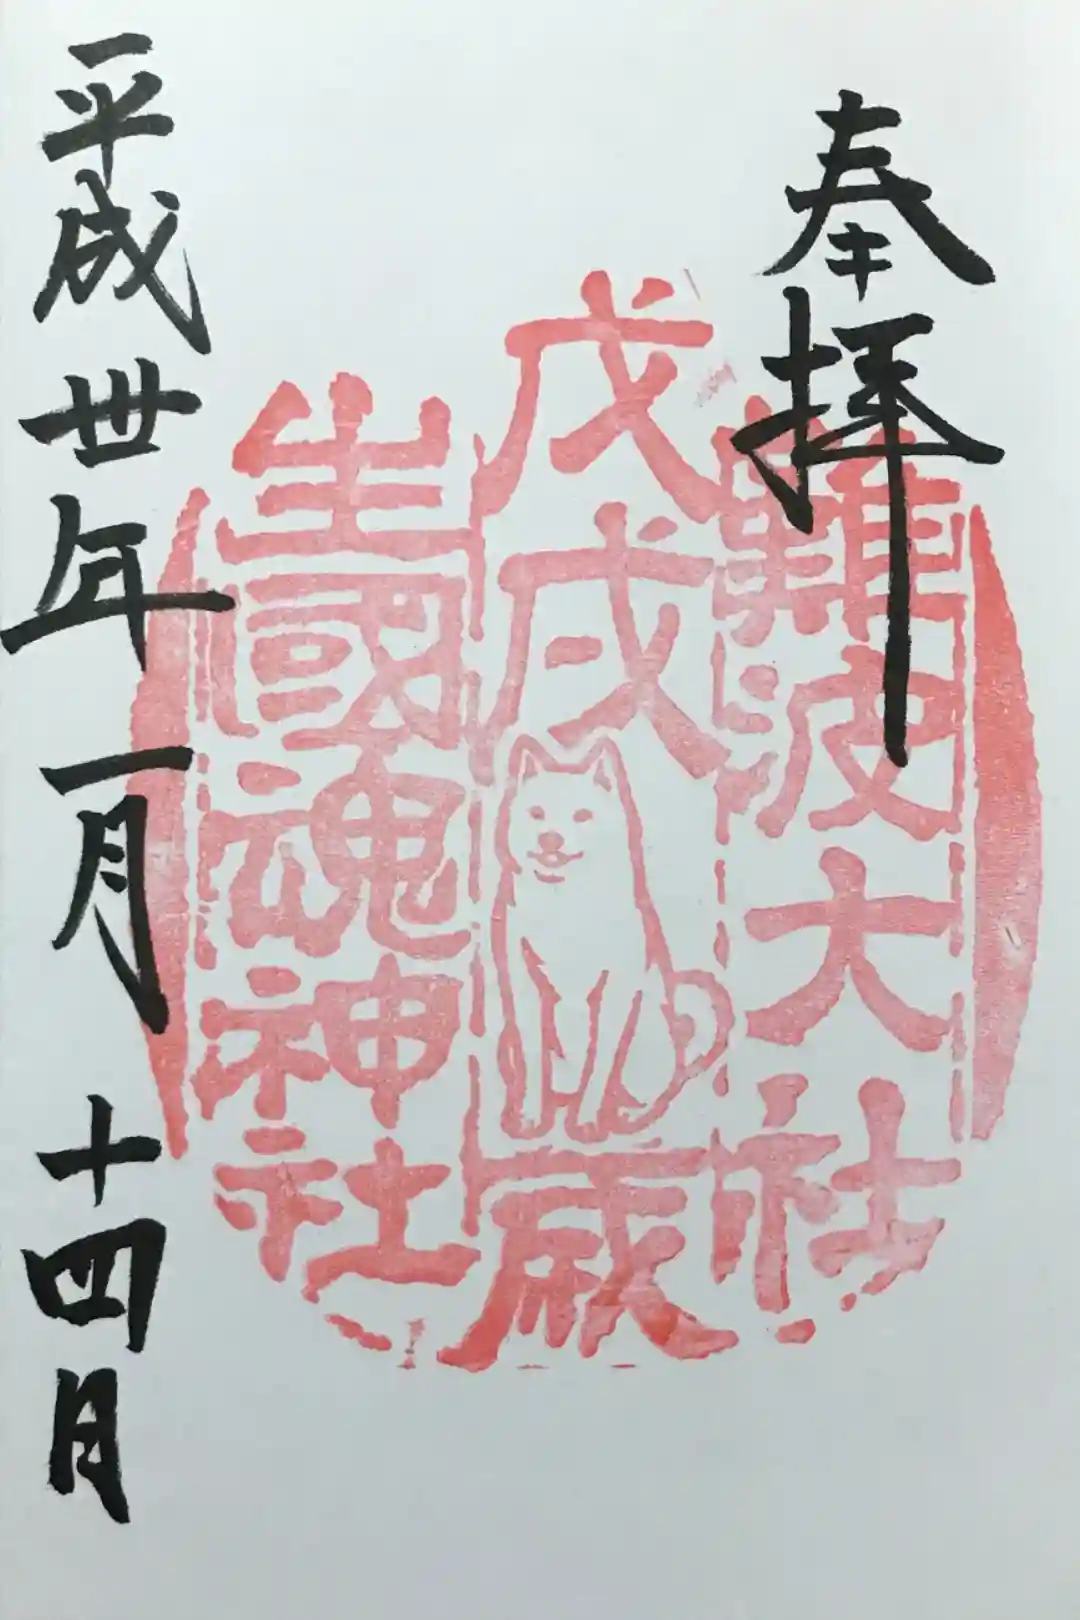 奉拝
難波大社
戊戌歳
生國魂神社
平成丗年一月十四日